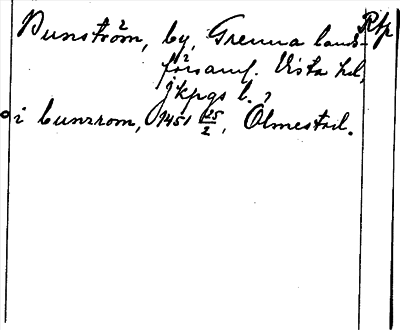 Bunström, by, Grenna lands- Rfp
församl. Vista hd,
jkpgs l.?
i bunzrom, 1451 25/2, Ölmestad.